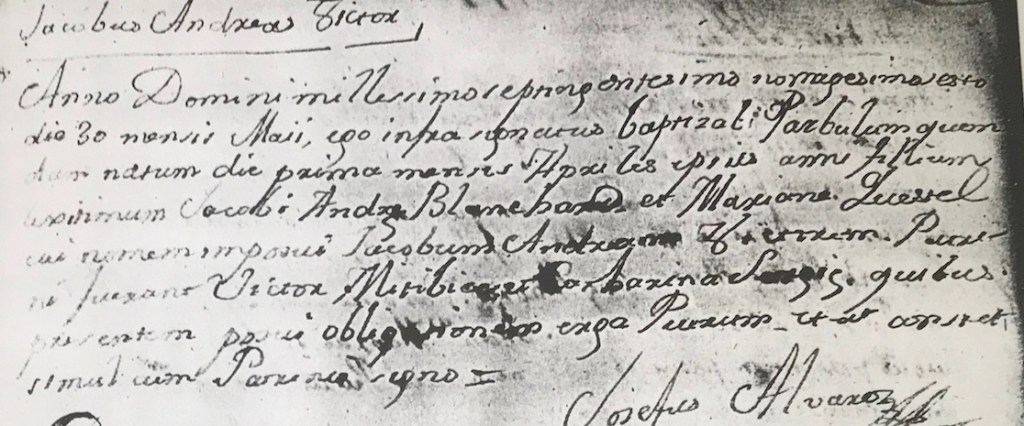 Jacobus Andreas Victor
Anno Domini millessimo septingentesimo nonagesimo
die 30 mensis Maii, ego infra signatus baptizabi Parbulum quem
dam natum die prima mensis Aprilis ipsius anni filium
legitimum Jacobi Andrę Blanchard et Mariane Questel
cui nomen imposui Jacobum Andream Victorem. Patri-
ni fuerunt Victor et Catharina quibus
presentem posui obligationem erga Puerum et ut constet
simul cum Patrino signo
Josefus Alvarez